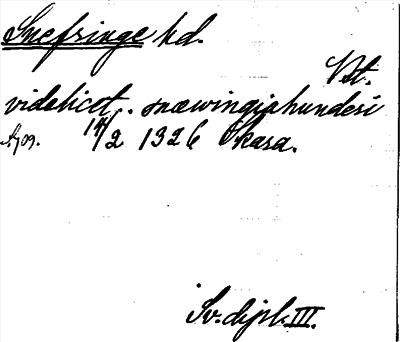 Snefringe hd.
Vst.
videlicet .. snæwingiahundesi
14/2 1326 Skara.
Sv. dipl. III.